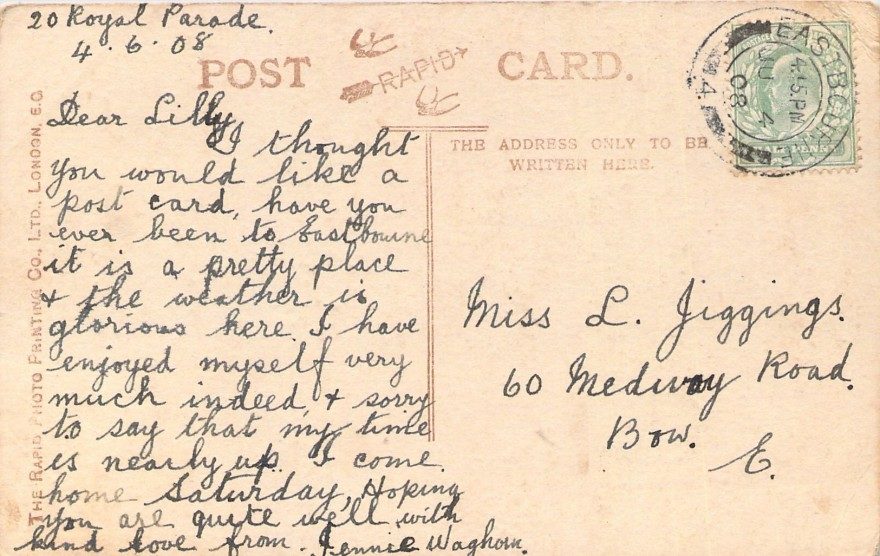 20 Royal Parade.
4.6.08
POST CARD.
RAPID
EASTBOURNE
4.15 PM
JU 4
08
THE ADDRESS ONLY TO BE
WRITTEN HERE.
Dear Lilly
I thought
you would like a
post card, have you
ever been to Eastbourne
it is a pretty place
& the weather is
glorious here. I have
enjoyed myself very
much indeed, & sorry
to say that my time
is nearly up. I come
home Saturday, Hoping
you are quite well with
kind love from. Jennie Waghorn.
Miss L. Jiggings.
60 Medway Road.
Bow.
E.
THE RAPID PHOTO PRINTING CO., LTD., LONDON, E.C.